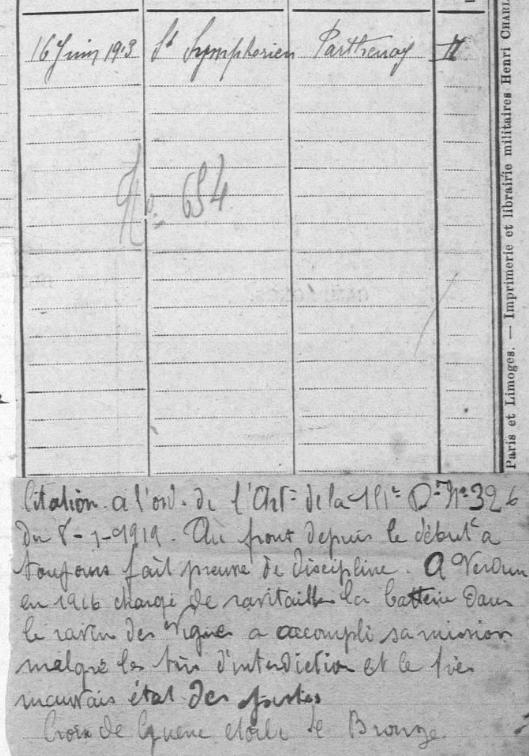 16 Juin 1913 St Symphorien Parthenay II
No 654
Paris et Limoges. — Imprimerie et librairie militaires Henri CHARL
Citation a l'ord. de l'Art. de la D. No 326
du 8-1-1919. Au front depuis le début a
toujours fait preuve de discipline. A Verdun
en 1916 chargé de ravitailler la batterie dans
le ravin des Vignes a accompli sa mission
malgré les tirs d'interdiction et le très
mauvais état des pistes
Croix de Guerre etoile de Bronze